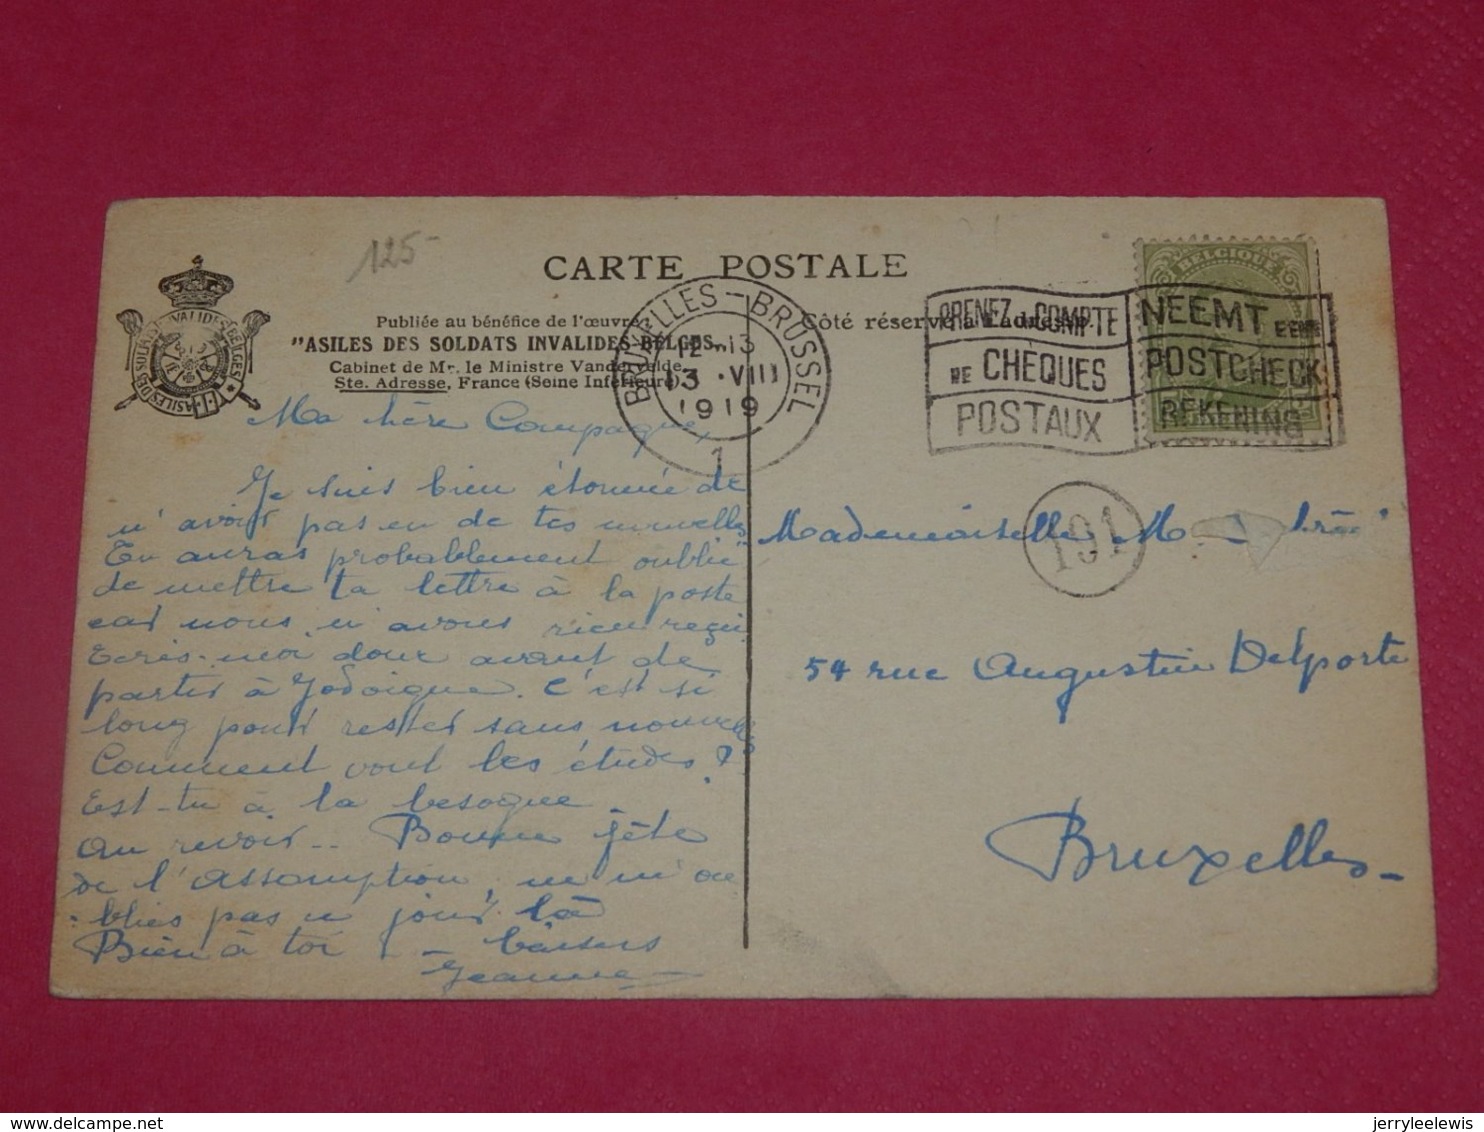 125-
CARTE POSTALE
Publiée au bénéfice de l'œuvre:
"ASILES DES SOLDATS INVALIDES BELGES"
Cabinet de Mr. le Ministre Vandervelde
Ste. Adresse, France (Seine Inférieure).
ASILES DES SOLDATS INVALIDES BELGES
Côté réservé à l'adresse.
BRUXELLES - BRUSSEL
12-13
13 · VIII
1919
1
PRENEZ UN COMPTE
DE CHÈQUES
POSTAUX
NEEMT EENE
POSTCHECK
REKENING
BELGIQUE
Ma chère Compagne,
Je suis bien étonnée de
n'avoir pas eu de tes nouvelles
Tu auras probablement oublié
de mettre ta lettre à la poste
car nous n'avons rien reçu
Ecris-moi donc avant de
partir à Jodoigne. C'est si
long pour rester sans nouvelles
Comment vont les études?
Est-tu à la besogne
Au revoir.. Bonne fête
de l'Assomption, ne m'ou
-blies pas ce jour là
Bien à toi - baisers
Jeanne
191
Mademoiselle M
54 rue Augustin Delporte
Bruxelles-
delcampe.net
jerryleelewis